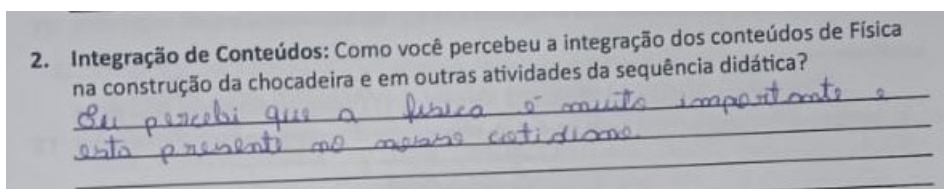 2. Integração de Conteúdos: Como você percebeu a integração dos conteúdos de Física
na construção da chocadeira e em outras atividades da sequência didática?
Eu percebi que a fisica é muito importante e
esta presente no nosso cotidiano.